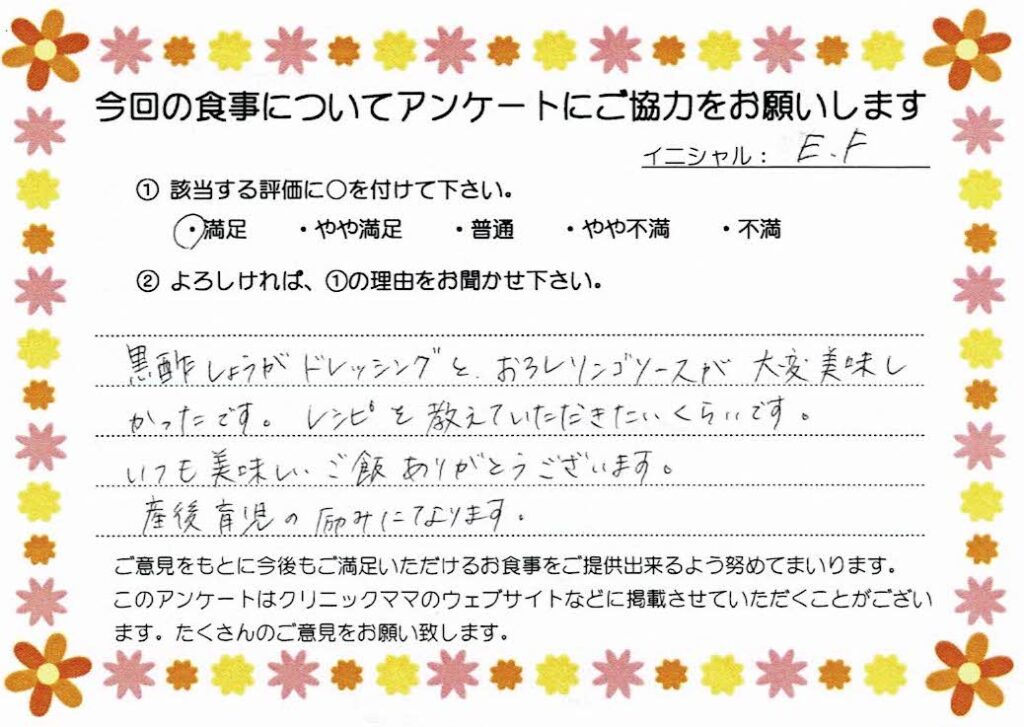 今回の食事についてアンケートにご協力をお願いします
イニシャル： E.F
① 該当する評価に○を付けて下さい。
・満足 ・やや満足 ・普通 ・やや不満 ・不満
② よろしければ、①の理由をお聞かせ下さい。
黒酢しょうがドレッシングと、おろしリンゴソースが大変美味し
かったです。レシピを教えていただきたいくらいです。
いつも美味しいご飯ありがとうございます。
産後育児の励みになります。
ご意見をもとに今後もご満足いただけるお食事をご提供出来るよう努めてまいります。
このアンケートはクリニックママのウェブサイトなどに掲載させていただくことがござい
ます。たくさんのご意見をお願い致します。